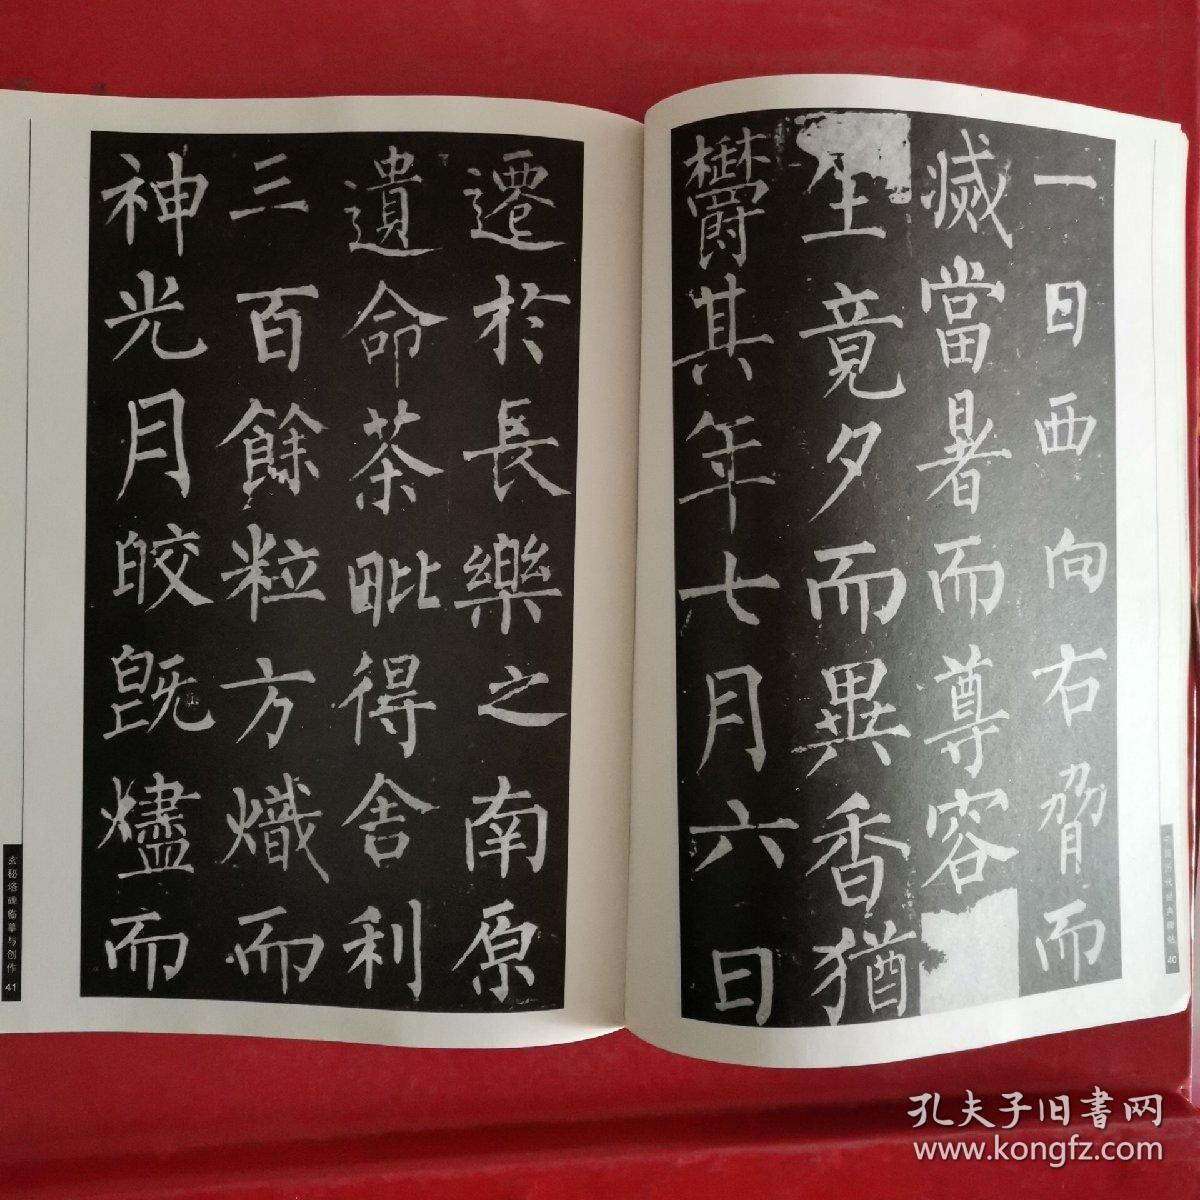 一日西向右脅而
滅當暑而尊容
生竟夕而異香猶
欝其年七月六日
中国历代经典碑帖 40
遷於長樂之南原
遺命茶毗得舍利
三百餘粒方熾而
神光月皎既燼而
玄秘塔碑临摹与创作 41
孔夫子旧书网
www.kongfz.com